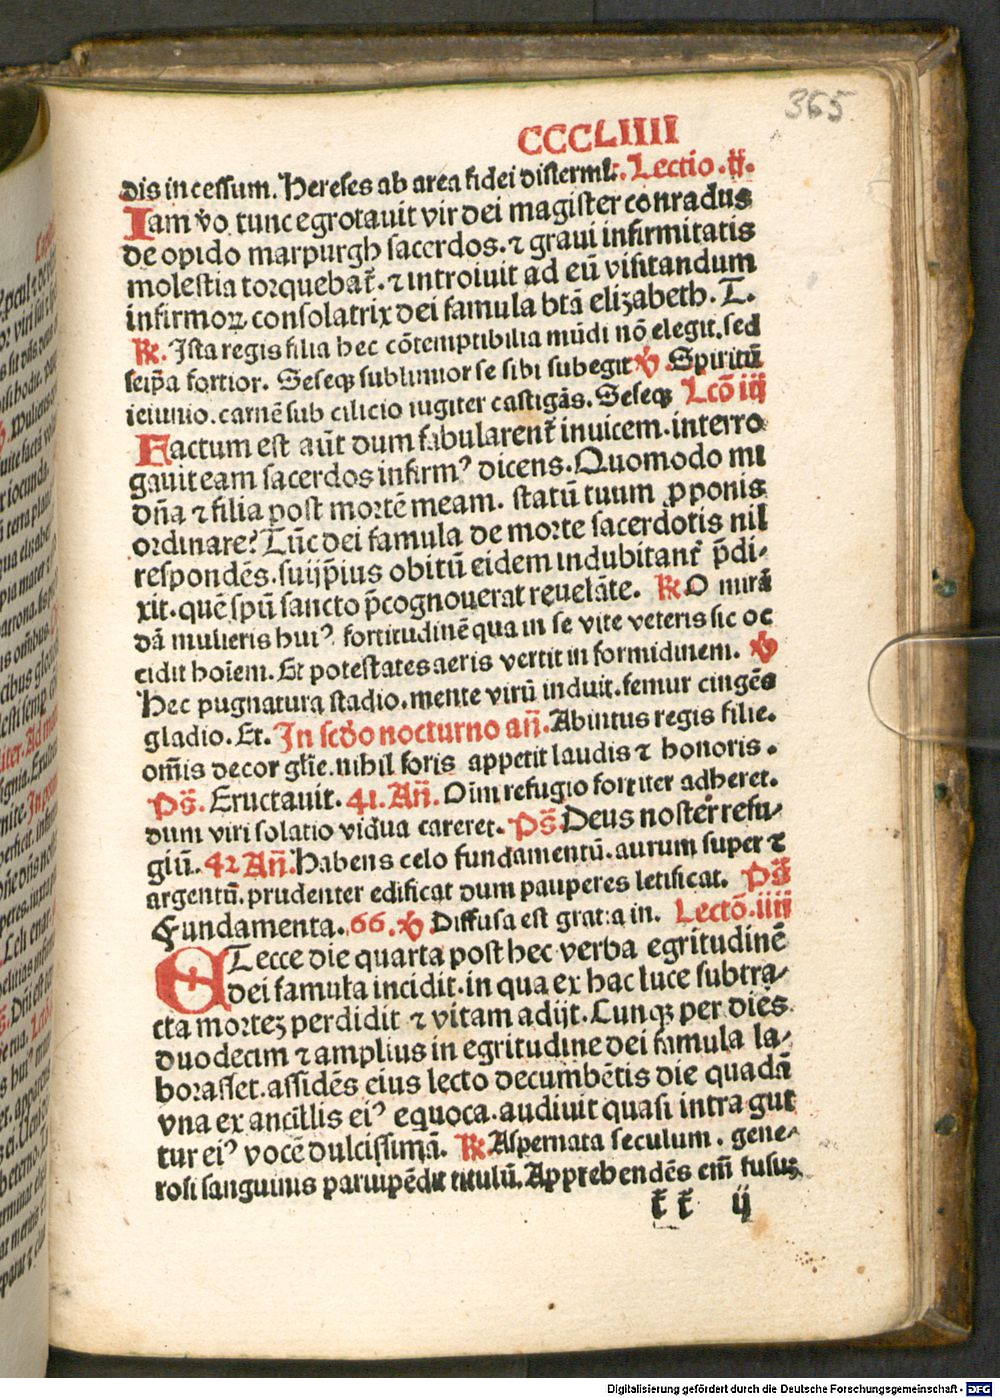 365
CCCLIIII
dis in cessum. Hereses ab area fidei disterml:. Lectio .ij.
Iam v̊o tunc egrotauit vir dei magister conradus
de opido marpurgh sacerdos. ⁊ graui infirmitatis
molestia torquebat̃. ⁊ introiuit ad eū visitandum
infirmoꝝ consolatrix dei famula btā elizabeth. T.
℟. Ista regis filia hec cōtemptibilia mūdi nō elegit. sed
seip̄a fortior. Seseqꝫ sublimior se sibi subegit ℣ Spiritū
ieiunio. carnē sub cilicio iugiter castigās. Seseqꝫ Lcō iij
Factum est aūt dum fabularent̃ inuicem. interro
gauit eam sacerdos infirmꝰ dicens. Quomodo mi
dn̄a ⁊ filia post mortē meam. statū tuum ꝓponis
ordinare? Tūc dei famula de morte sacerdotis nil
respondēs. suijp̄ius obitū eidem indubitant̃ p̄di-
xit. quē spū sancto p̄cognouerat reuelāte. ℟. O mirā
dā mulieris huiꝰ fortitudinē qua in se vite veteris sic oc
cidit hoīem. Et potestates aeris vertit in formidinem. ℣
Hec pugnatura stadio. mente virū induit. femur cingēs
gladio. Et. In scd̄o nocturno an̄. Abintus regis filie.
om̄is decor gl̄ie. nihil foris appetit laudis ⁊ honoris.
Ps̄. Eructauit. 41. An̄. Dim refugio fortiter adheret.
dum viri solatio vidua careret. Ps̄. Deus noster refu-
giū. 42 An̄. Habens celo fundamentū. aurum super ⁊
argentū. prudenter edificat dum pauperes letificat. Ps̄
Fundamenta. 66. ℣ Diffusa est gratia in. Lectō. iiij
ET ecce die quarta post hec verba egritudinē
dei famula incidit. in qua ex hac luce subtra-
cta mortez perdidit ⁊ vitam adijt. Cunqꝫ per dies
duodecim ⁊ amplius in egritudine dei famula la-
borasset. assidēs eius lecto decumbētis die quadā
vna ex ancillis eiꝰ equoca. audiuit quasi intra gut
tur eiꝰ vocē dulcissimā. ℟. Aspernata seculum. gene-
rosi sanguinis paruipēdit titulū. Apprehendēs em̄ fusuꝫ
t̄ t̄ ij
Digitalisierung gefördert durch die Deutsche Forschungsgemeinschaft - DFG